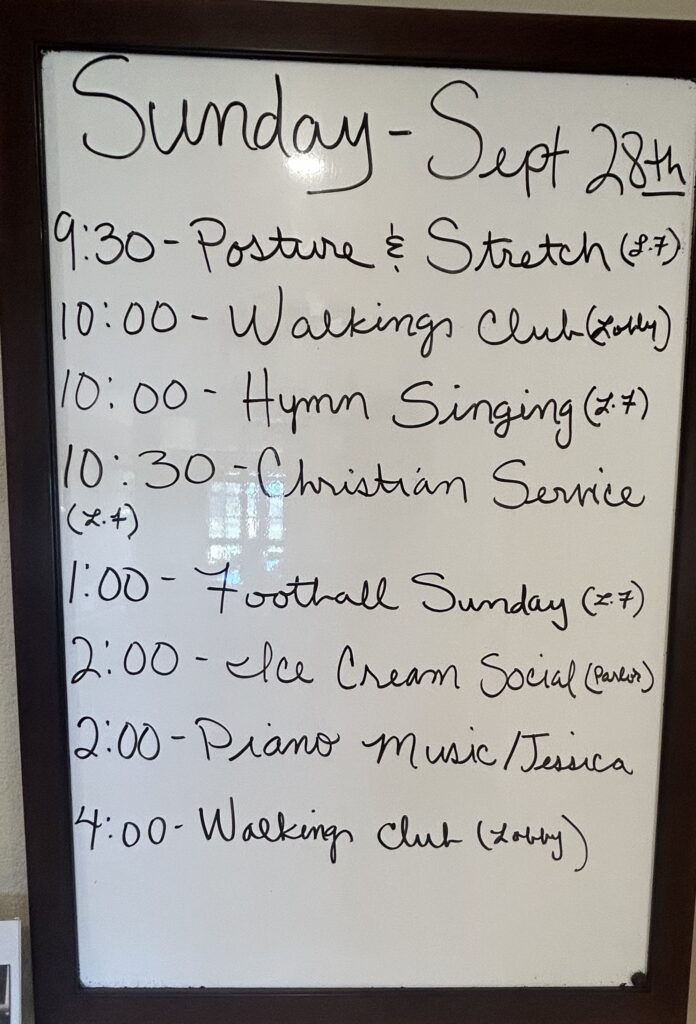 Sunday - Sept 28th
9:30 - Posture & Stretch (L.F)
10:00 - Walkings Club (Lobby)
10:00 - Hymn Singing (L.F)
10:30 - Christian Service
(L.F)
1:00 - Football Sunday (L.F)
2:00 - Ice Cream Social (Parlor)
2:00 - Piano Music/Jessica
4:00 - Walkings Club (Lobby)